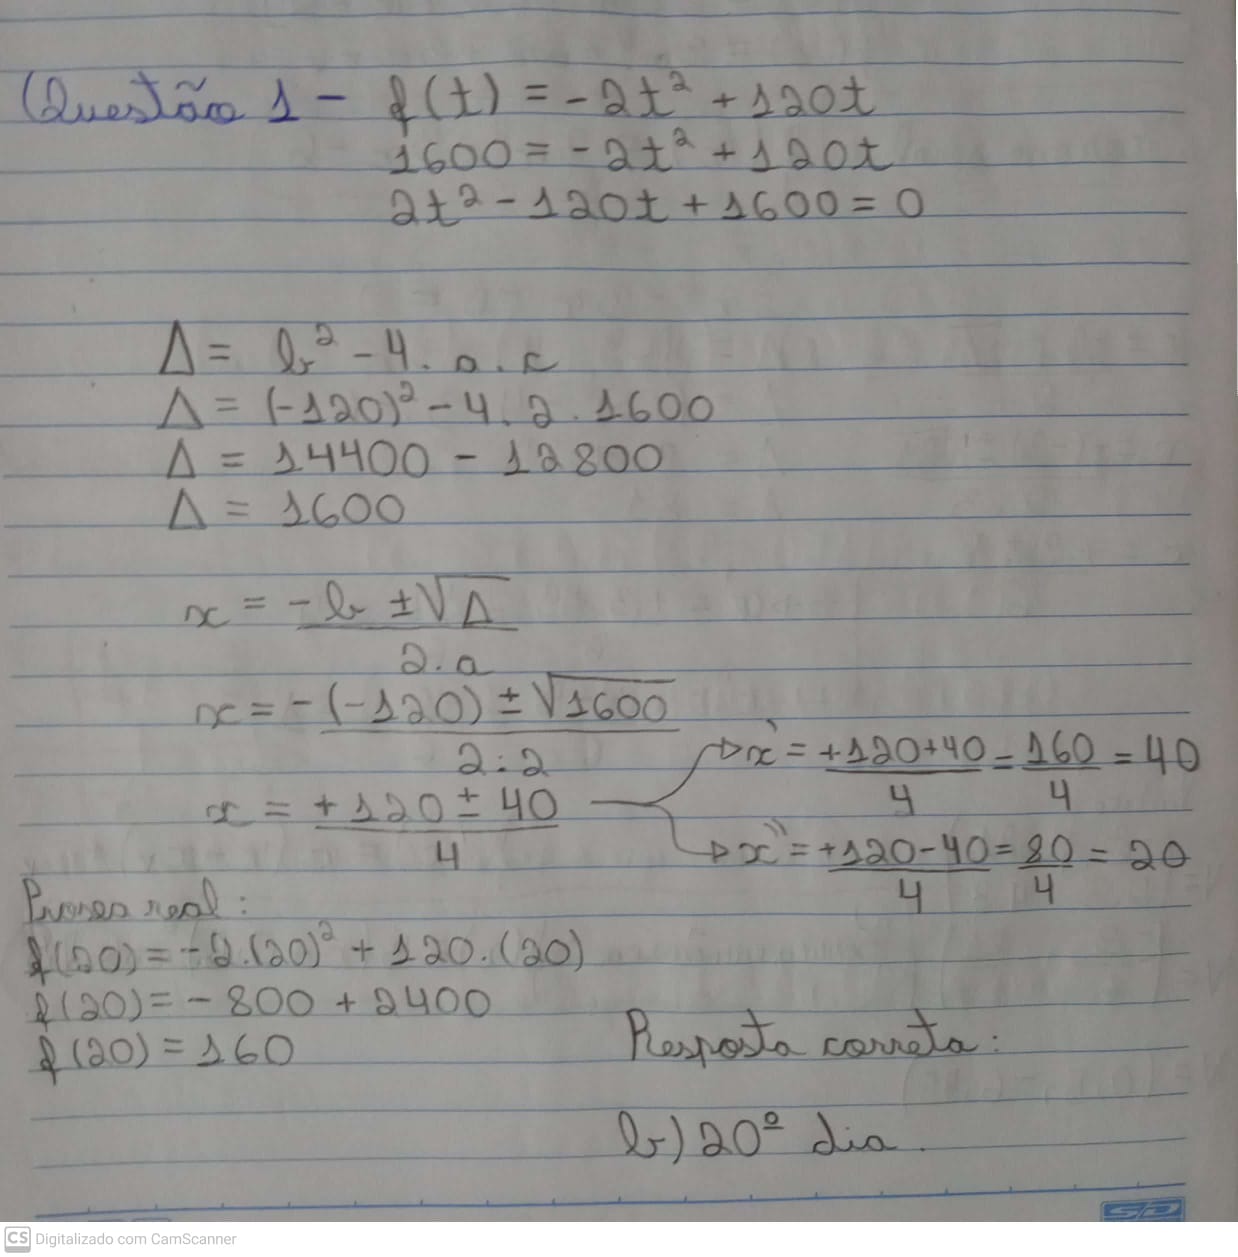 Questão 1 - f(t) = -2t² + 120t
1600 = -2t² + 120t
2t² - 120t + 1600 = 0
Δ = b² - 4. a. c
Δ = (-120)² - 4. 2. 1600
Δ = 14400 - 12800
Δ = 1600
x = -b ± √Δ
2. a
x = -(-120) ± √1600
2 . 2
x = +120 ± 40
4
x' = +120+40 = 160 = 40
4 4
x'' = +120-40 = 80 = 20
4 4
Prova real:
f(20) = -2.(20)² + 120.(20)
f(20) = -800 + 2400
f(20) = 160
Resposta correta:
b) 20º dia.
CS Digitalizado com CamScanner